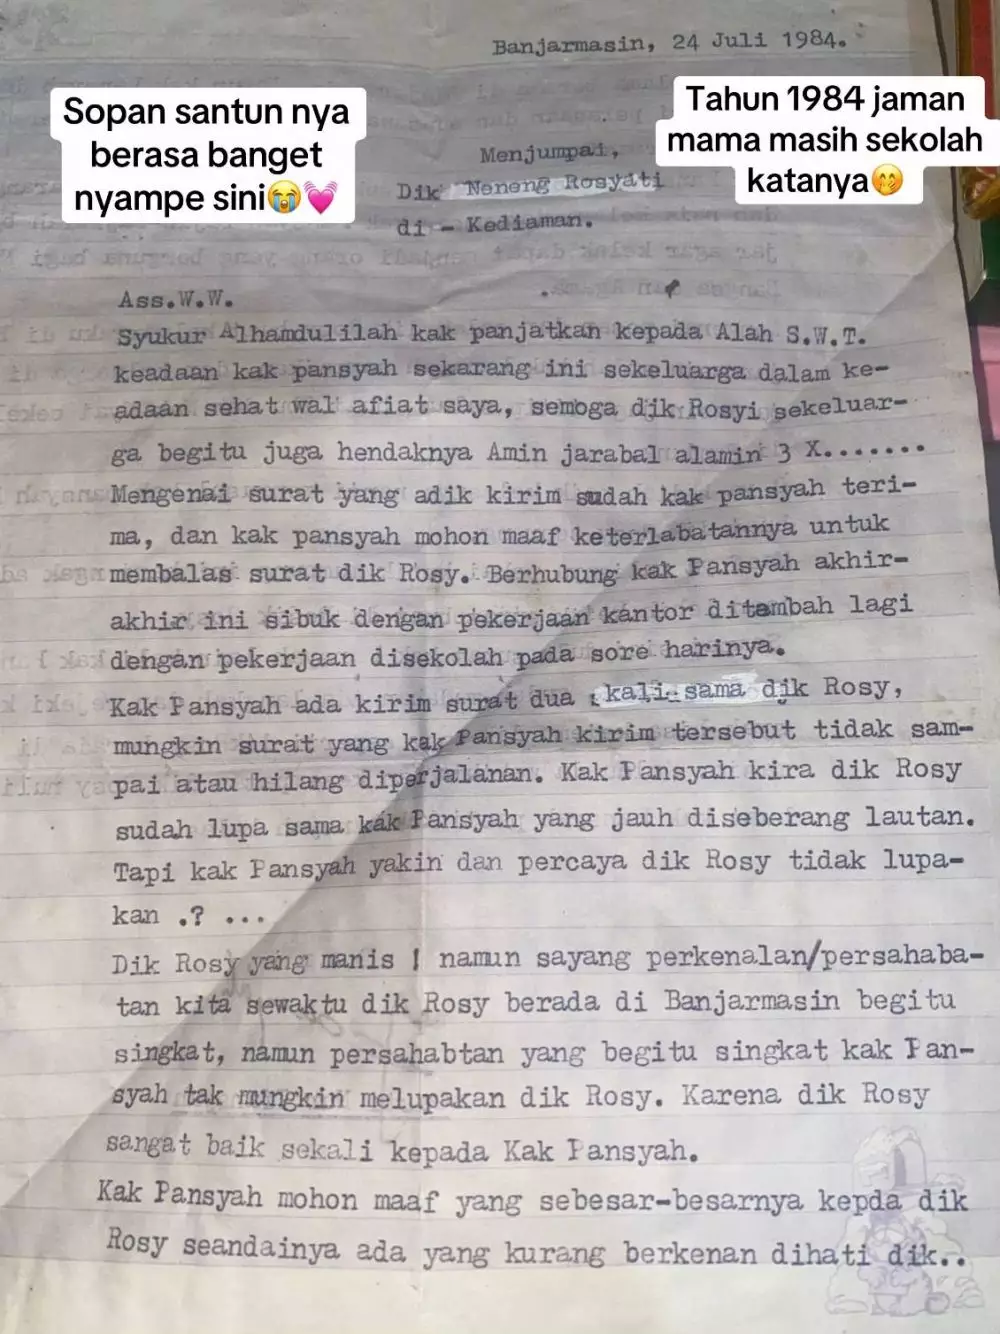 Banjarmasin, 24 Juli 1984.
Sopan santun nya
berasa banget
nyampe sini😭💓
Tahun 1984 jaman
mama masih sekolah
katanya🤭
Menjumpai,
Dik Neneng Rosyati
di - Kediaman.
Ass.W.W.
Syukur Alhamdulilah kak panjatkan kepada Alah S.W.T.
keadaan kak pansyah sekarang ini sekeluarga dalam ke-
adaan sehat wal afiat saya, semoga dik Rosyi sekeluar-
ga begitu juga hendaknya Amin jarabal alamin 3 X.......
Mengenai surat yang adik kirim sudah kak pansyah teri-
ma, dan kak pansyah mohon maaf keterlabatannya untuk
membalas surat dik Rosy. Berhubung kak Pansyah akhir-
akhir ini sibuk dengan pekerjaan kantor ditambah lagi
dengan pekerjaan disekolah pada sore harinya.
Kak Pansyah ada kirim surat dua kali sama dik Rosy,
mungkin surat yang kak Pansyah kirim tersebut tidak sam-
pai atau hilang diperjalanan. Kak Pansyah kira dik Rosy
sudah lupa sama kak Pansyah yang jauh diseberang lautan.
Tapi kak Pansyah yakin dan percaya dik Rosy tidak lupa-
kan .? ...
Dik Rosy yang manis ! namun sayang perkenalan/persahaba-
tan kita sewaktu dik Rosy berada di Banjarmasin begitu
singkat, namun persahabtan yang begitu singkat kak Pan-
syah tak mungkin melupakan dik Rosy. Karena dik Rosy
sangat baik sekali kepada Kak Pansyah.
Kak Pansyah mohon maaf yang sebesar-besarnya kepda dik
Rosy seandainya ada yang kurang berkenan dihati dik..